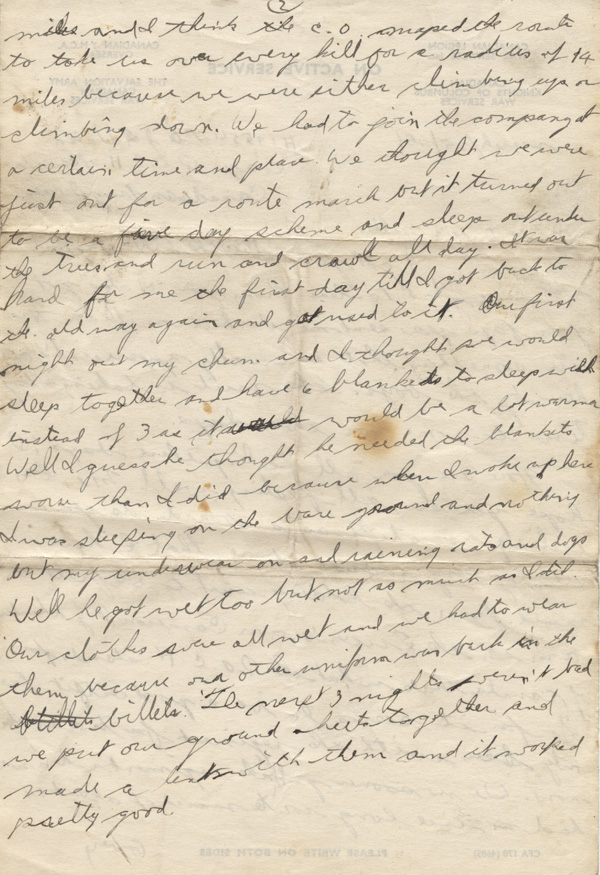 2
miles and I think the C.O. maped the route
to take us over every hill for a radius of 14
miles because we were either climbing up or
climbing down. We had to join the company at
a certain time and place. We thought we were
just out for a route march but it turned out
to be a five day scheme and sleep out under
the trees and run and crawl all day. It was
hard for me the first day till I got back to
the old way again and got used to it. Our first
night out my chum and I thought we would
sleep together and have 6 blankets to sleep with
instead of 3 as it would would be a lot warmer
Well I guess he thought he needed the blankets
worse than I did because when I woke up here
I was sleeping on the bare ground and nothing
but my underwear on and raining rats and dogs
Well he got wet too but not so much as I did.
Our clothes were all wet and we had to wear
them because our other uniform was back in the
billets. The next 3 nights weren't bad
we put our ground sheets together and
made a tent with them and it worked
pretty good
PLEASE WRITE ON BOTH SIDES
ON ACTIVE SERVICE